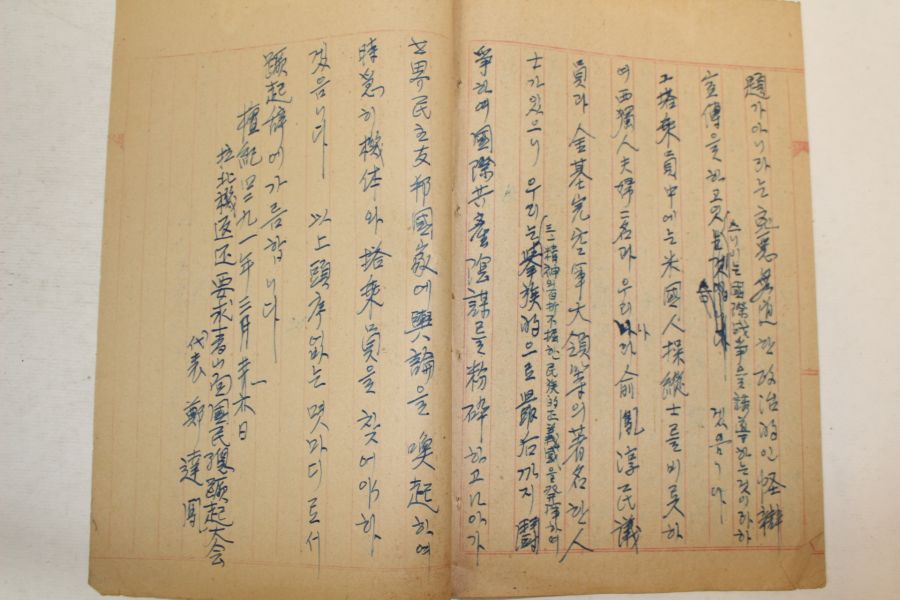 題가아니라는 兇惡無道한政治的인怪辯
宣傳을하고있
스니 이는 國際戰爭을誘導하는것이라하
겠읍니다
그搭乘員中에는米國人操縱士를비롯하
여西獨人夫婦二名과우리나라兪鳳淳民議
員과金基完空軍大領等의著名한人
士가있으니 우리는擧族的으로最后까지鬪
三一精神의百折不撓한民族的正義感을發揮하여
爭하여國際共産陰謀를粉碎하고나아가
世界民主友邦國家에輿論을喚起하여
時急히機体와搭乘員을찾어야하
겠읍니다 以上頭序없는몃마디로서
蹶起辞에가름합니다
檀紀四二九一年三月 日
拉北機返还要求 國民總蹶起大会
代表 鄭達鳳